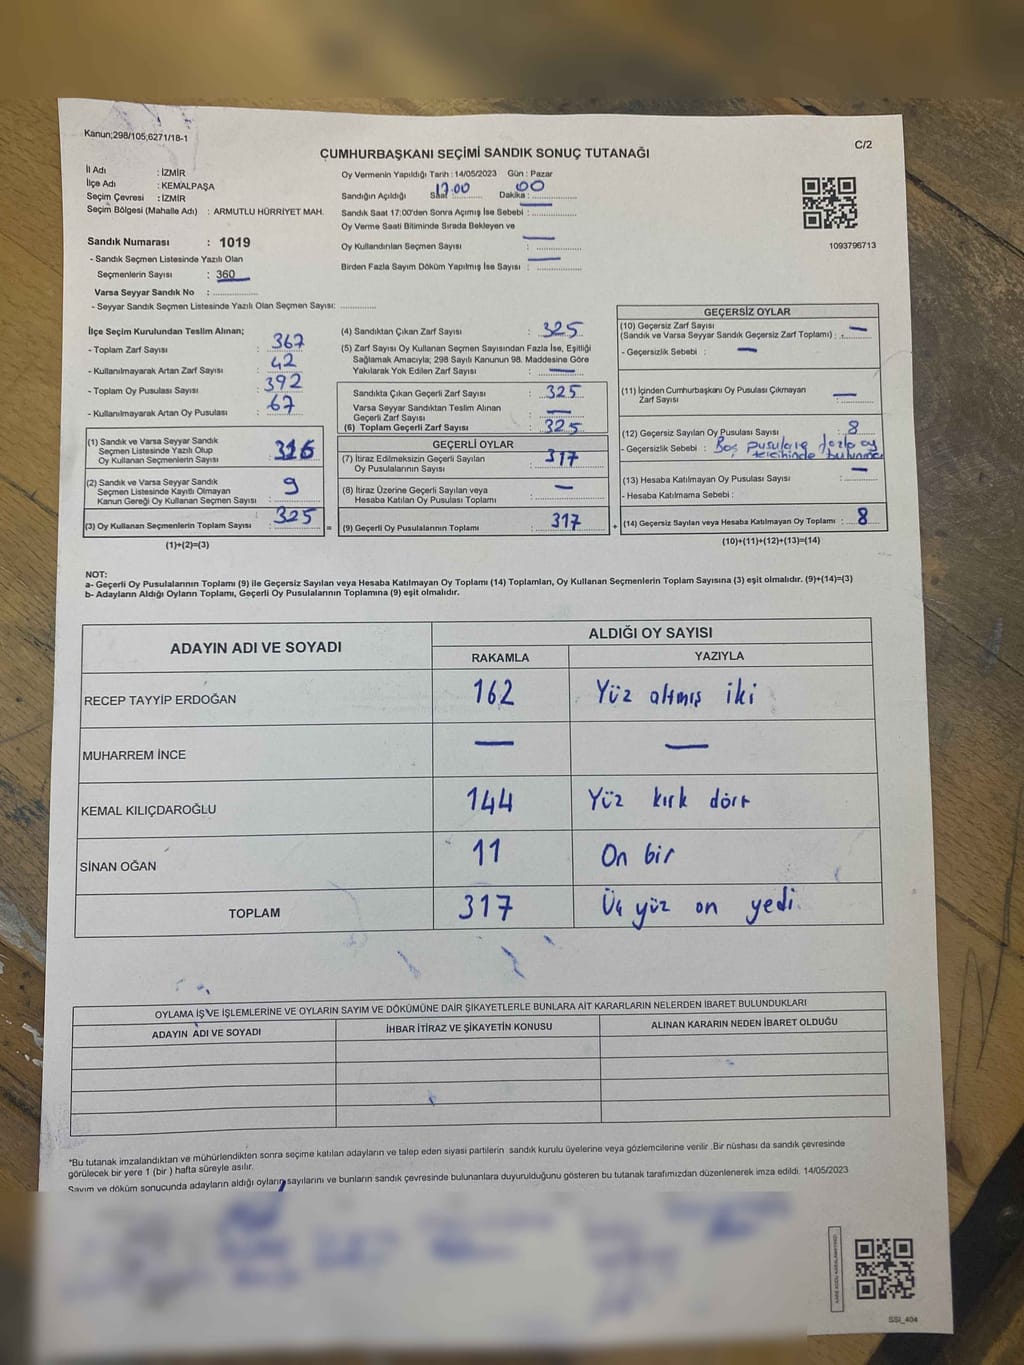 Kanun;298/105,6271/18-1
C/2
ÇUMHURBAŞKANI SEÇİMİ SANDIK SONUÇ TUTANAĞI
İl Adı : İZMİR
İlçe Adı : KEMALPAŞA
Seçim Çevresi : İZMİR
Seçim Bölgesi (Mahalle Adı) : ARMUTLU HÜRRİYET MAH.
Sandık Numarası : 1019
- Sandık Seçmen Listesinde Yazılı Olan
Seçmenlerin Sayısı : 360
Varsa Seyyar Sandık No :
- Seyyar Sandık Seçmen Listesinde Yazılı Olan Seçmen Sayısı:
Oy Vermenin Yapıldığı Tarih : 14/05/2023 Gün : Pazar
Sandığın Açıldığı Saat : 17:00 Dakika : 00
Sandık Saat 17:00'den Sonra Açımış İse Sebebi : —
Oy Verme Saati Bitiminde Sırada Bekleyen ve
Oy Kullandırılan Seçmen Sayısı : —
Birden Fazla Sayım Döküm Yapılmış İse Sayısı : —
1093796713
İlçe Seçim Kurulundan Teslim Alınan;
- Toplam Zarf Sayısı : 367
- Kullanılmayarak Artan Zarf Sayısı : 42
- Toplam Oy Pusulası Sayısı : 392
- Kullanılmayarak Artan Oy Pusulası : 67
(1) Sandık ve Varsa Seyyar Sandık
Seçmen Listesinde Yazılı Olup
Oy Kullanan Seçmenlerin Sayısı : 316
(2) Sandık ve Varsa Seyyar Sandık
Seçmen Listesinde Kayıtlı Olmayan
Kanun Gereği Oy Kullanan Seçmen Sayısı : 9
(3) Oy Kullanan Seçmenlerin Toplam Sayısı : 325 =
(1)+(2)=(3)
(4) Sandıktan Çıkan Zarf Sayısı : 325
(5) Zarf Sayısı Oy Kullanan Seçmen Sayısından Fazla İse, Eşitliği
Sağlamak Amacıyla; 298 Sayılı Kanunun 98. Maddesine Göre
Yakılarak Yok Edilen Zarf Sayısı : —
Sandıkta Çıkan Geçerli Zarf Sayısı : 325
Varsa Seyyar Sandıktan Teslim Alınan
Geçerli Zarf Sayısı : —
(6) Toplam Geçerli Zarf Sayısı : 325
GEÇERLİ OYLAR
(7) İtiraz Edilmeksizin Geçerli Sayılan
Oy Pusulalarının Sayısı : 317
(8) İtiraz Üzerine Geçerli Sayılan veya
Hesaba Katılan Oy Pusulası Toplamı : —
(9) Geçerli Oy Pusulalarının Toplamı : 317 +
GEÇERSİZ OYLAR
(10) Geçersiz Zarf Sayısı
(Sandık ve Varsa Seyyar Sandık Geçersiz Zarf Toplamı) : —
- Geçersizlik Sebebi : —
(11) İçinden Cumhurbaşkanı Oy Pusulası Çıkmayan
Zarf Sayısı : —
(12) Geçersiz Sayılan Oy Pusulası Sayısı : 8
- Geçersizlik Sebebi : Boş pusulara fazla oy
tercihinde bulunma
(13) Hesaba Katılmayan Oy Pusulası Sayısı : —
- Hesaba Katılmama Sebebi :
(14) Geçersiz Sayılan veya Hesaba Katılmayan Oy Toplamı : 8
(10)+(11)+(12)+(13)=(14)
NOT:
a- Geçerli Oy Pusulalarının Toplamı (9) ile Geçersiz Sayılan veya Hesaba Katılmayan Oy Toplamı (14) Toplamları, Oy Kullanan Seçmenlerin Toplam Sayısına (3) eşit olmalıdır. (9)+(14)=(3)
b- Adayların Aldığı Oyların Toplamı, Geçerli Oy Pusulalarının Toplamına (9) eşit olmalıdır.
ADAYIN ADI VE SOYADI ALDIĞI OY SAYISI
RAKAMLA YAZIYLA
RECEP TAYYİP ERDOĞAN 162 Yüz altmış iki
MUHARREM İNCE — —
KEMAL KILIÇDAROĞLU 144 Yüz kırk dört
SİNAN OĞAN 11 On bir
TOPLAM 317 Üç yüz on yedi
OYLAMA İŞ VE İŞLEMLERİNE VE OYLARIN SAYIM VE DÖKÜMÜNE DAİR ŞİKAYETLERLE BUNLARA AİT KARARLARIN NELERDEN İBARET BULUNDUKLARI
ADAYIN ADI VE SOYADI İHBAR İTİRAZ VE ŞİKAYETİN KONUSU ALINAN KARARIN NEDEN İBARET OLDUĞU
*Bu tutanak imzalandıktan ve mühürlendikten sonra seçime katılan adayların ve talep eden siyasi partilerin sandık kurulu üyelerine veya gözlemcilerine verilir. Bir nüshası da sandık çevresinde
görülecek bir yere 1 (bir) hafta süreyle asılır.
Sayım ve döküm sonucunda adayların aldığı oyların sayılarını ve bunların sandık çevresinde bulunanlara duyurulduğunu gösteren bu tutanak tarafımızdan düzenlenerek imza edildi. 14/05/2023
SSI_404